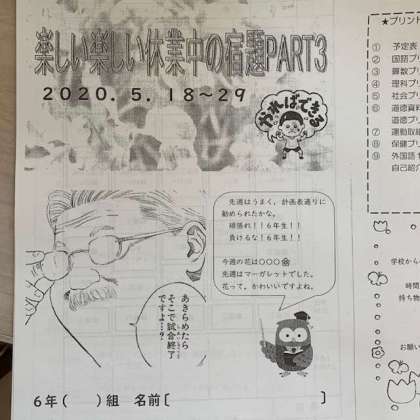 楽しい楽しい休業中の宿題PART3
2020.5.18~29
やればできる
先週はうまく，計画表通りに
勧められたかな。
頑張れ！！6年生！！
負けるな！6年生！！
今週の花は〇〇〇
先週はマーガレットでした。
花って，かわいいですよね。
あきらめたら
そこで試合終了
ですよ…？
6年( )組 名前[ ]
★プリン
① 予定表
② 国語プリ
③ 算数プリ
④ 理科プリ
⑤ 社会プリ
⑥ 道徳資料
道徳プリ
⑦ 運動取組
⑧ 保健プリ
⑨ 外国語
自己紹介
学校から
時間
持ち物
お願い